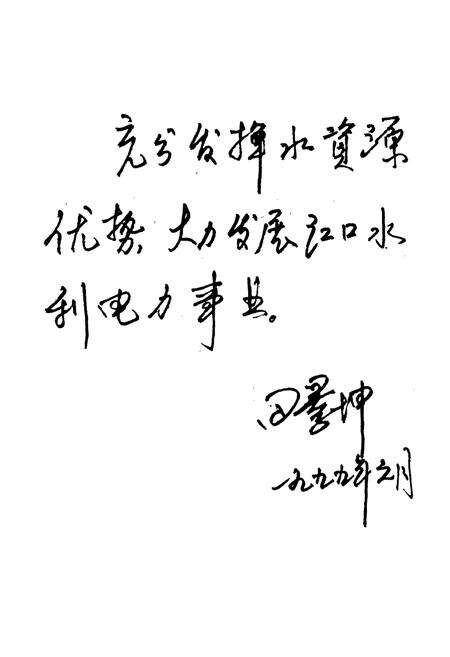 充分发挥水資源
优势，大力发展江口水
利电力事业。
田景坤
一九九九年元月